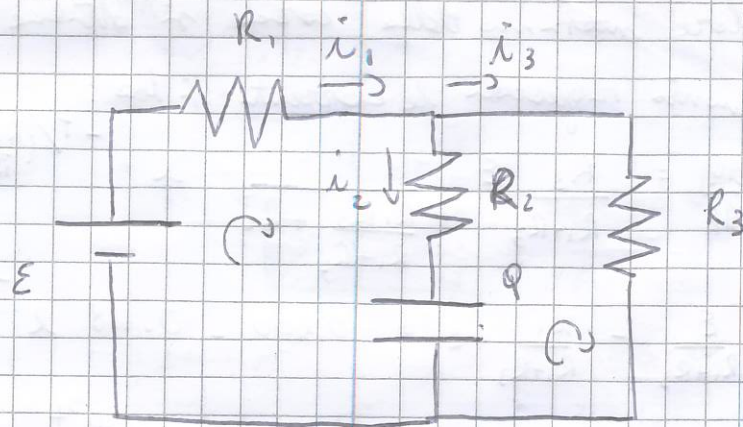 R₁ i₁ i₃
i₂ R₂ R₃
ε Q